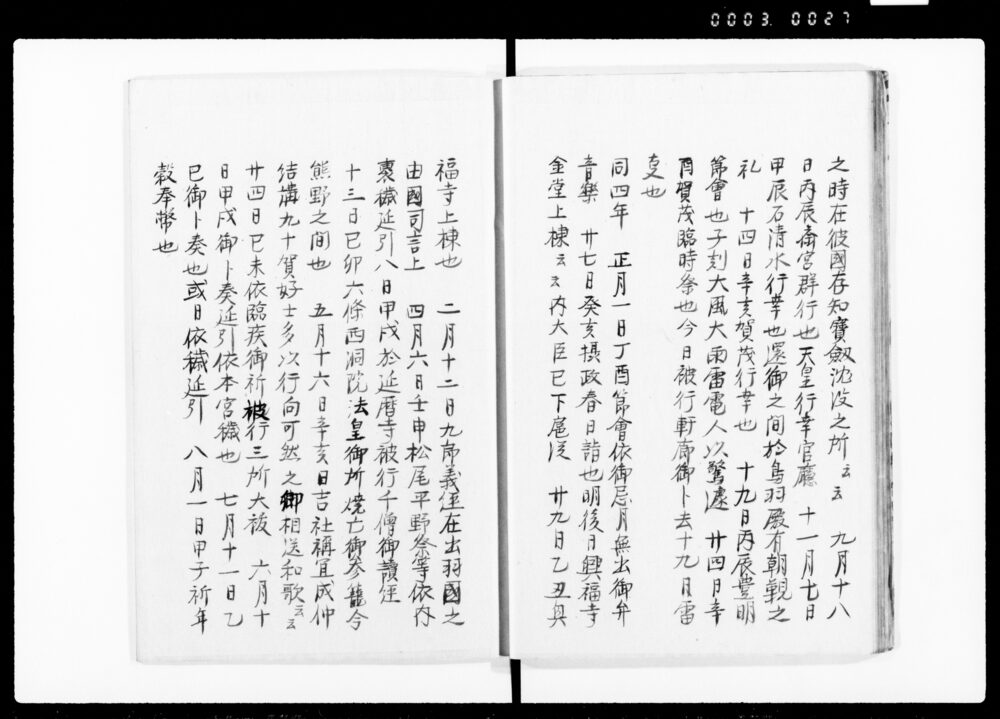 0003 0027
之時在彼國存知寶劔沈没之所云云　九月十八
日丙辰斎宮群行也天皇行幸官廳　十一月七日
甲辰石清水行幸也還御之間於鳥羽殿有朝覲之
礼　十四日辛亥賀茂行幸也　十九日丙辰豊明
節會也子刻大風大雨雷電人以驚遽　廿四日辛
酉賀茂臨時祭也今日被行軒廊御卜去十九月雷
也
同四年　正月一日丁酉節會依御忌月無出御弁
音樂　廿七日癸亥摂政春日詣也明後日興福寺
金堂上棟云云内大臣已下扈従　廿九日乙丑興
福寺上棟也　二月十二日九郎義経在出羽國之
由國司言上　四月六日壬申松尾平野祭等依内
裏穢延引八日甲戌於延暦寺被行千僧御讀経
十三日已卯六條西洞院法皇御所焼亡御参籠今
熊野之間也　五月十六日辛亥日吉社祢冝成仲
結講九十賀好士多以行向可然之卿相送和歌云云
廿四日已未依臨疾御祈被行三所大祓　六月十
日甲戌御卜奏延引依本宮穢也　七月十一日乙
巳御卜奏也或日依穢延引　八月一日甲子祈年
穀奉幣也